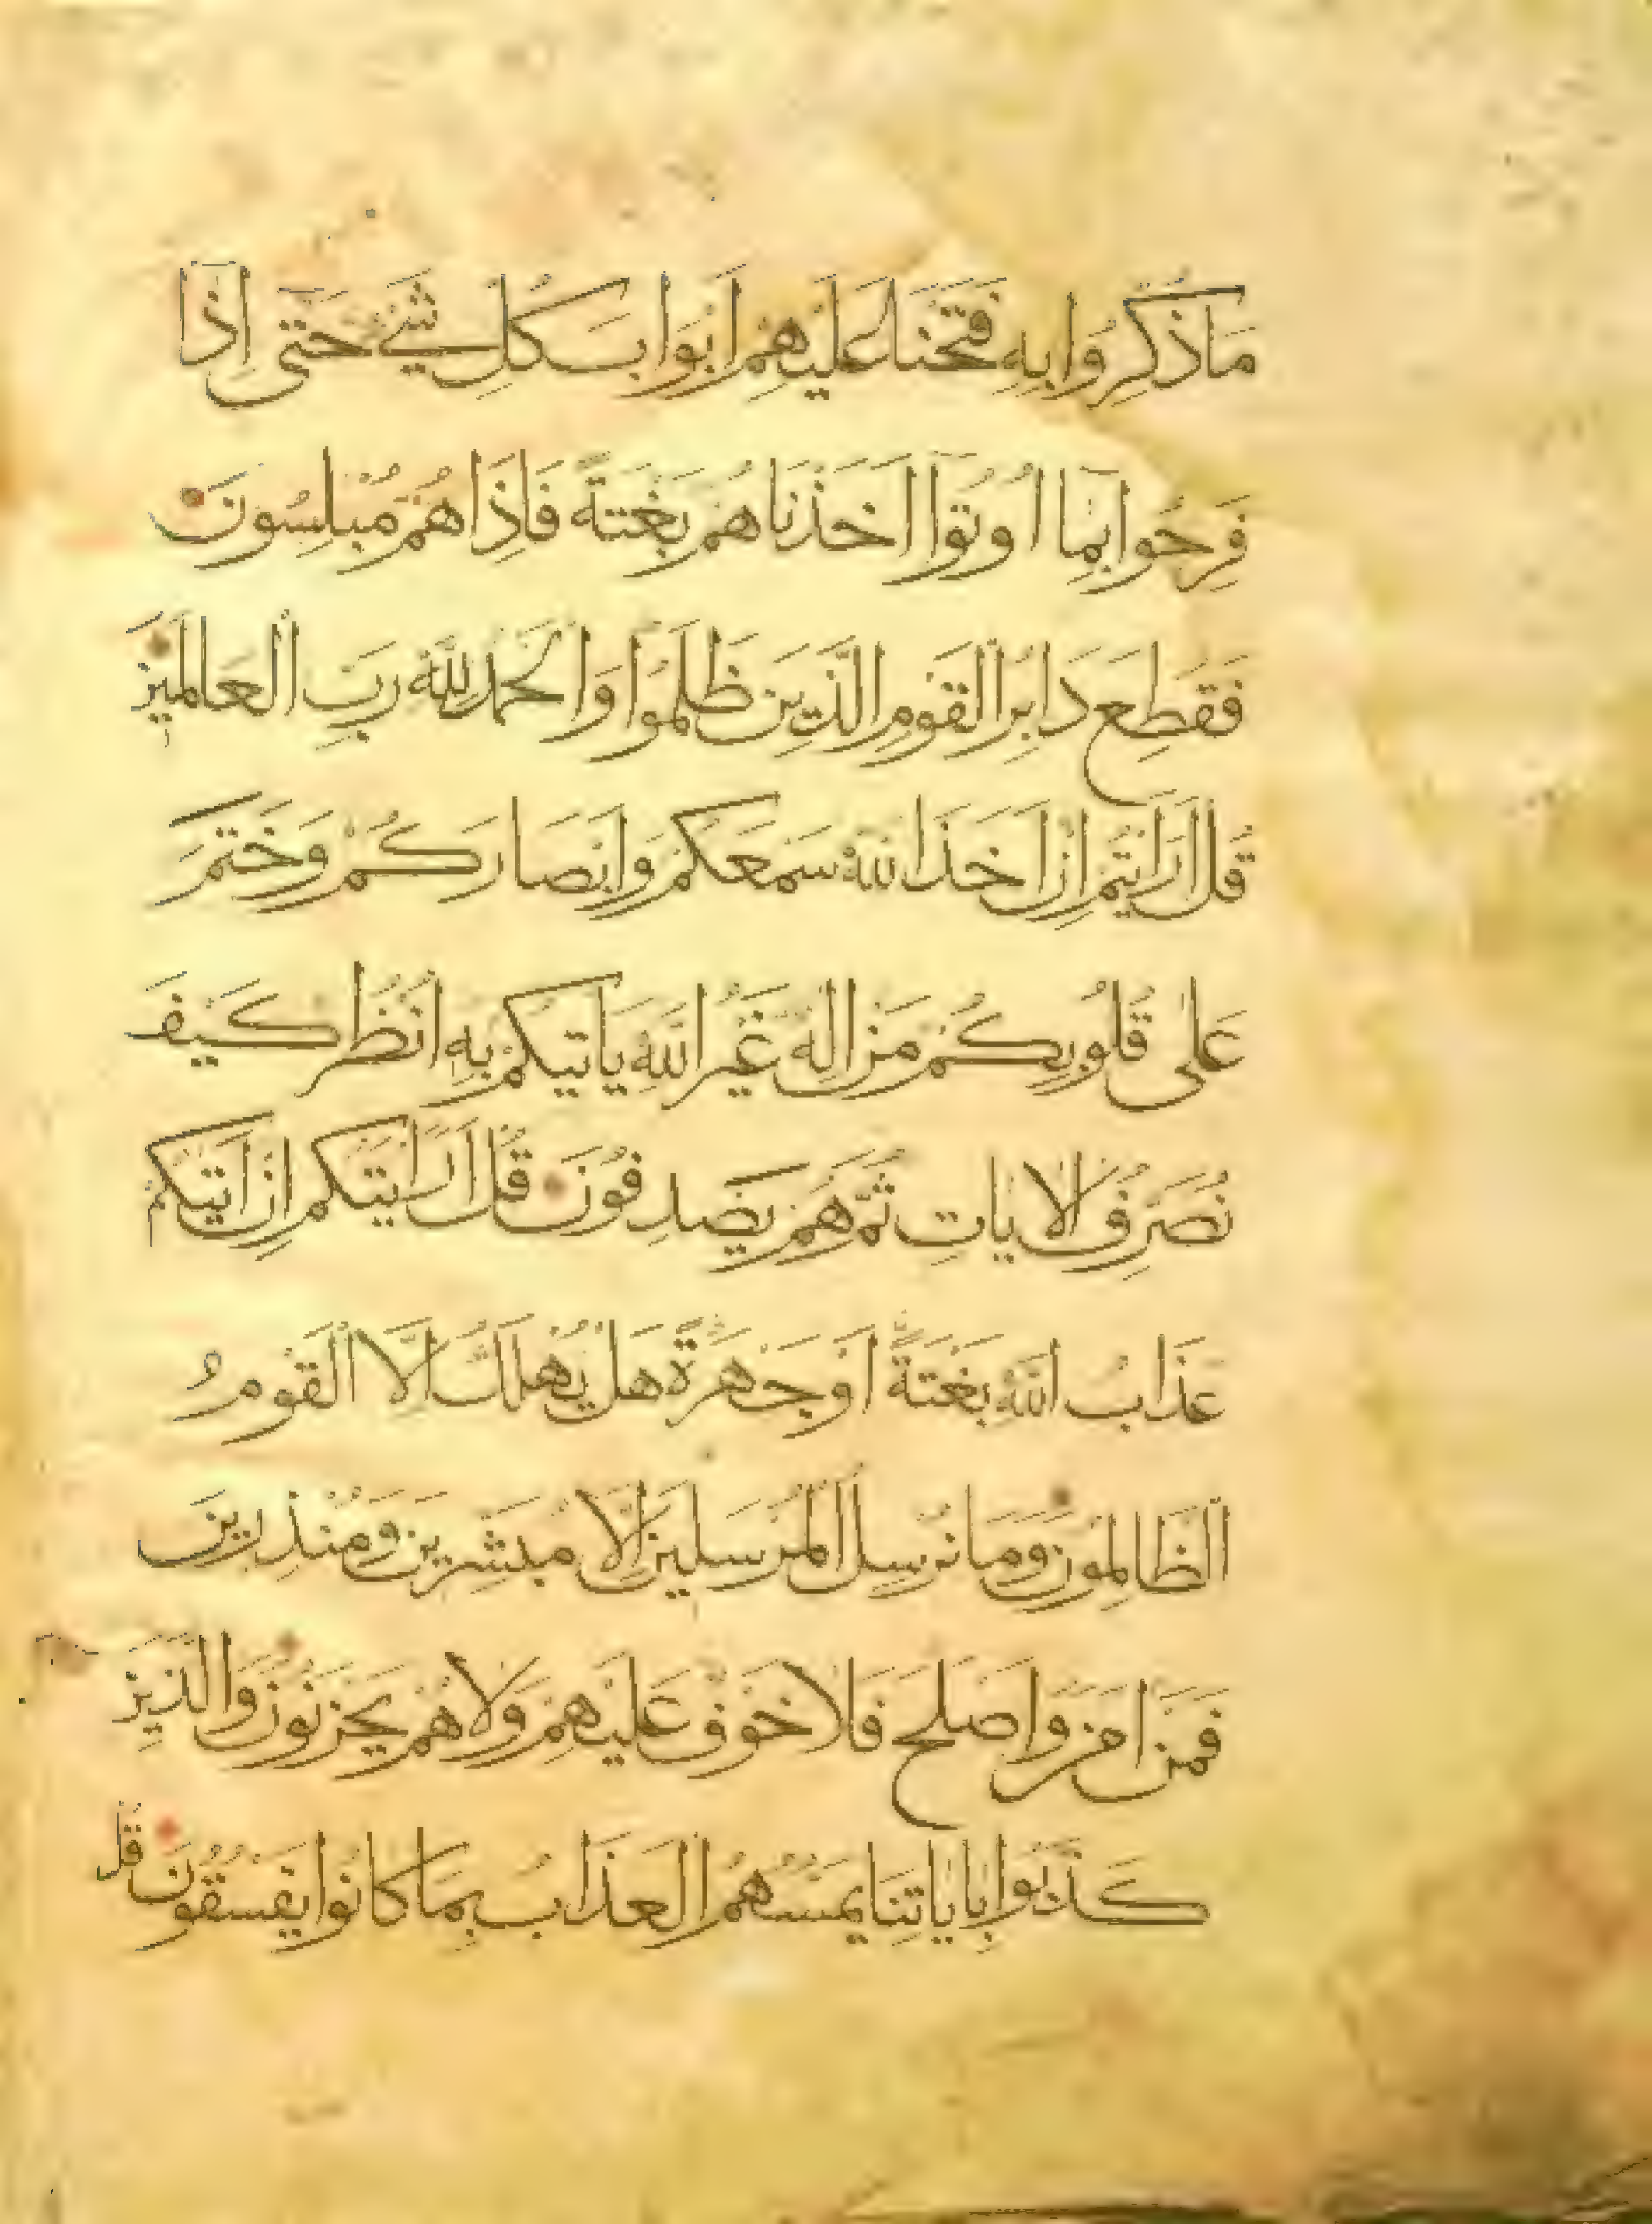 مَا ذُكِّرُوا بِهِ فَتَحْنَا عَلَيْهِمْ اَبْوَابَ كُلِّ شَيْءٍ حَتّٰى اِذَا
فَرِحُوا بِمَا اُوتُوا اَخَذْنَاهُمْ بَغْتَةً فَاِذَا هُمْ مُبْلِسُونَ
فَقُطِعَ دَابِرُ الْقَوْمِ الَّذِينَ ظَلَمُوا وَالْحَمْدُ لِلّٰهِ رَبِّ الْعَالَمِينَ
قُلْ اَرَاَيْتُمْ اِنْ اَخَذَ اللّٰهُ سَمْعَكُمْ وَاَبْصَارَكُمْ وَخَتَمَ
عَلٰى قُلُوبِكُمْ مَنْ اِلٰهٌ غَيْرُ اللّٰهِ يَاْتِيكُمْ بِهِ اُنْظُرْ كَيْفَ
نُصَرِّفُ الْاٰيَاتِ ثُمَّ هُمْ يَصْدِفُونَ قُلْ اَرَاَيْتَكُمْ اِنْ اَتٰيكُمْ
عَذَابُ اللّٰهِ بَغْتَةً اَوْ جَهْرَةً هَلْ يُهْلَكُ اِلَّا الْقَوْمُ
الظَّالِمُونَ وَمَا نُرْسِلُ الْمُرْسَلِينَ اِلَّا مُبَشِّرِينَ وَمُنْذِرِينَ
فَمَنْ اٰمَنَ وَاَصْلَحَ فَلَا خَوْفٌ عَلَيْهِمْ وَلَا هُمْ يَحْزَنُونَ وَالَّذِينَ
كَذَّبُوا بِاٰيَاتِنَا يَمَسُّهُمُ الْعَذَابُ بِمَا كَانُوا يَفْسُقُونَ قُلْ